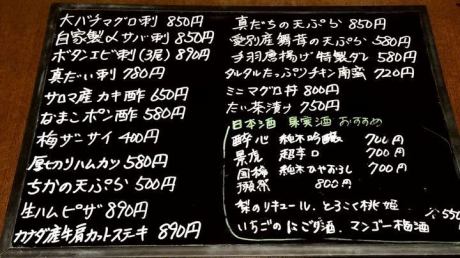 大バチマグロ刺 850円
自家製〆サバ刺 850円
ボタンエビ刺(3尾) 890円
真だい刺 780円
サロマ産カキ酢 650円
なまこポン酢 580円
梅ザーサイ 400円
厚切りハムカツ 580円
ちかの天ぷら 500円
生ハムピザ 890円
カナダ産牛肩カットステーキ 890円
真だちの天ぷら 850円
愛別産舞茸の天ぷら 580円
手羽唐揚げ特製ダレ 580円
タルタルたっぷりチキン南蛮 720円
ミニマグロ丼 800円
たい茶漬け 750円
日本酒 果実酒 おすすめ
酔心 純米吟醸 700円
景虎 超辛口 700円
国稀 純米ひやおろし 700円
獺祭 800円
梨のリキュール、とろこく桃姫
いちごのにごり酒、マンゴー梅酒 550